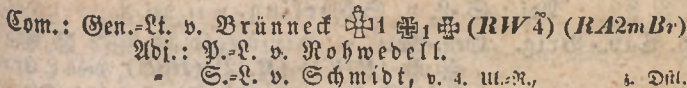 Com.: Gen.-Lt. v. Brünneck 1 1 (RW4) (RA2mBr)
Adj.: P.-L. v. Rohwedell.
- S.-L. v. Schmidt, v. 4. Ul.-R., z. Dftl.